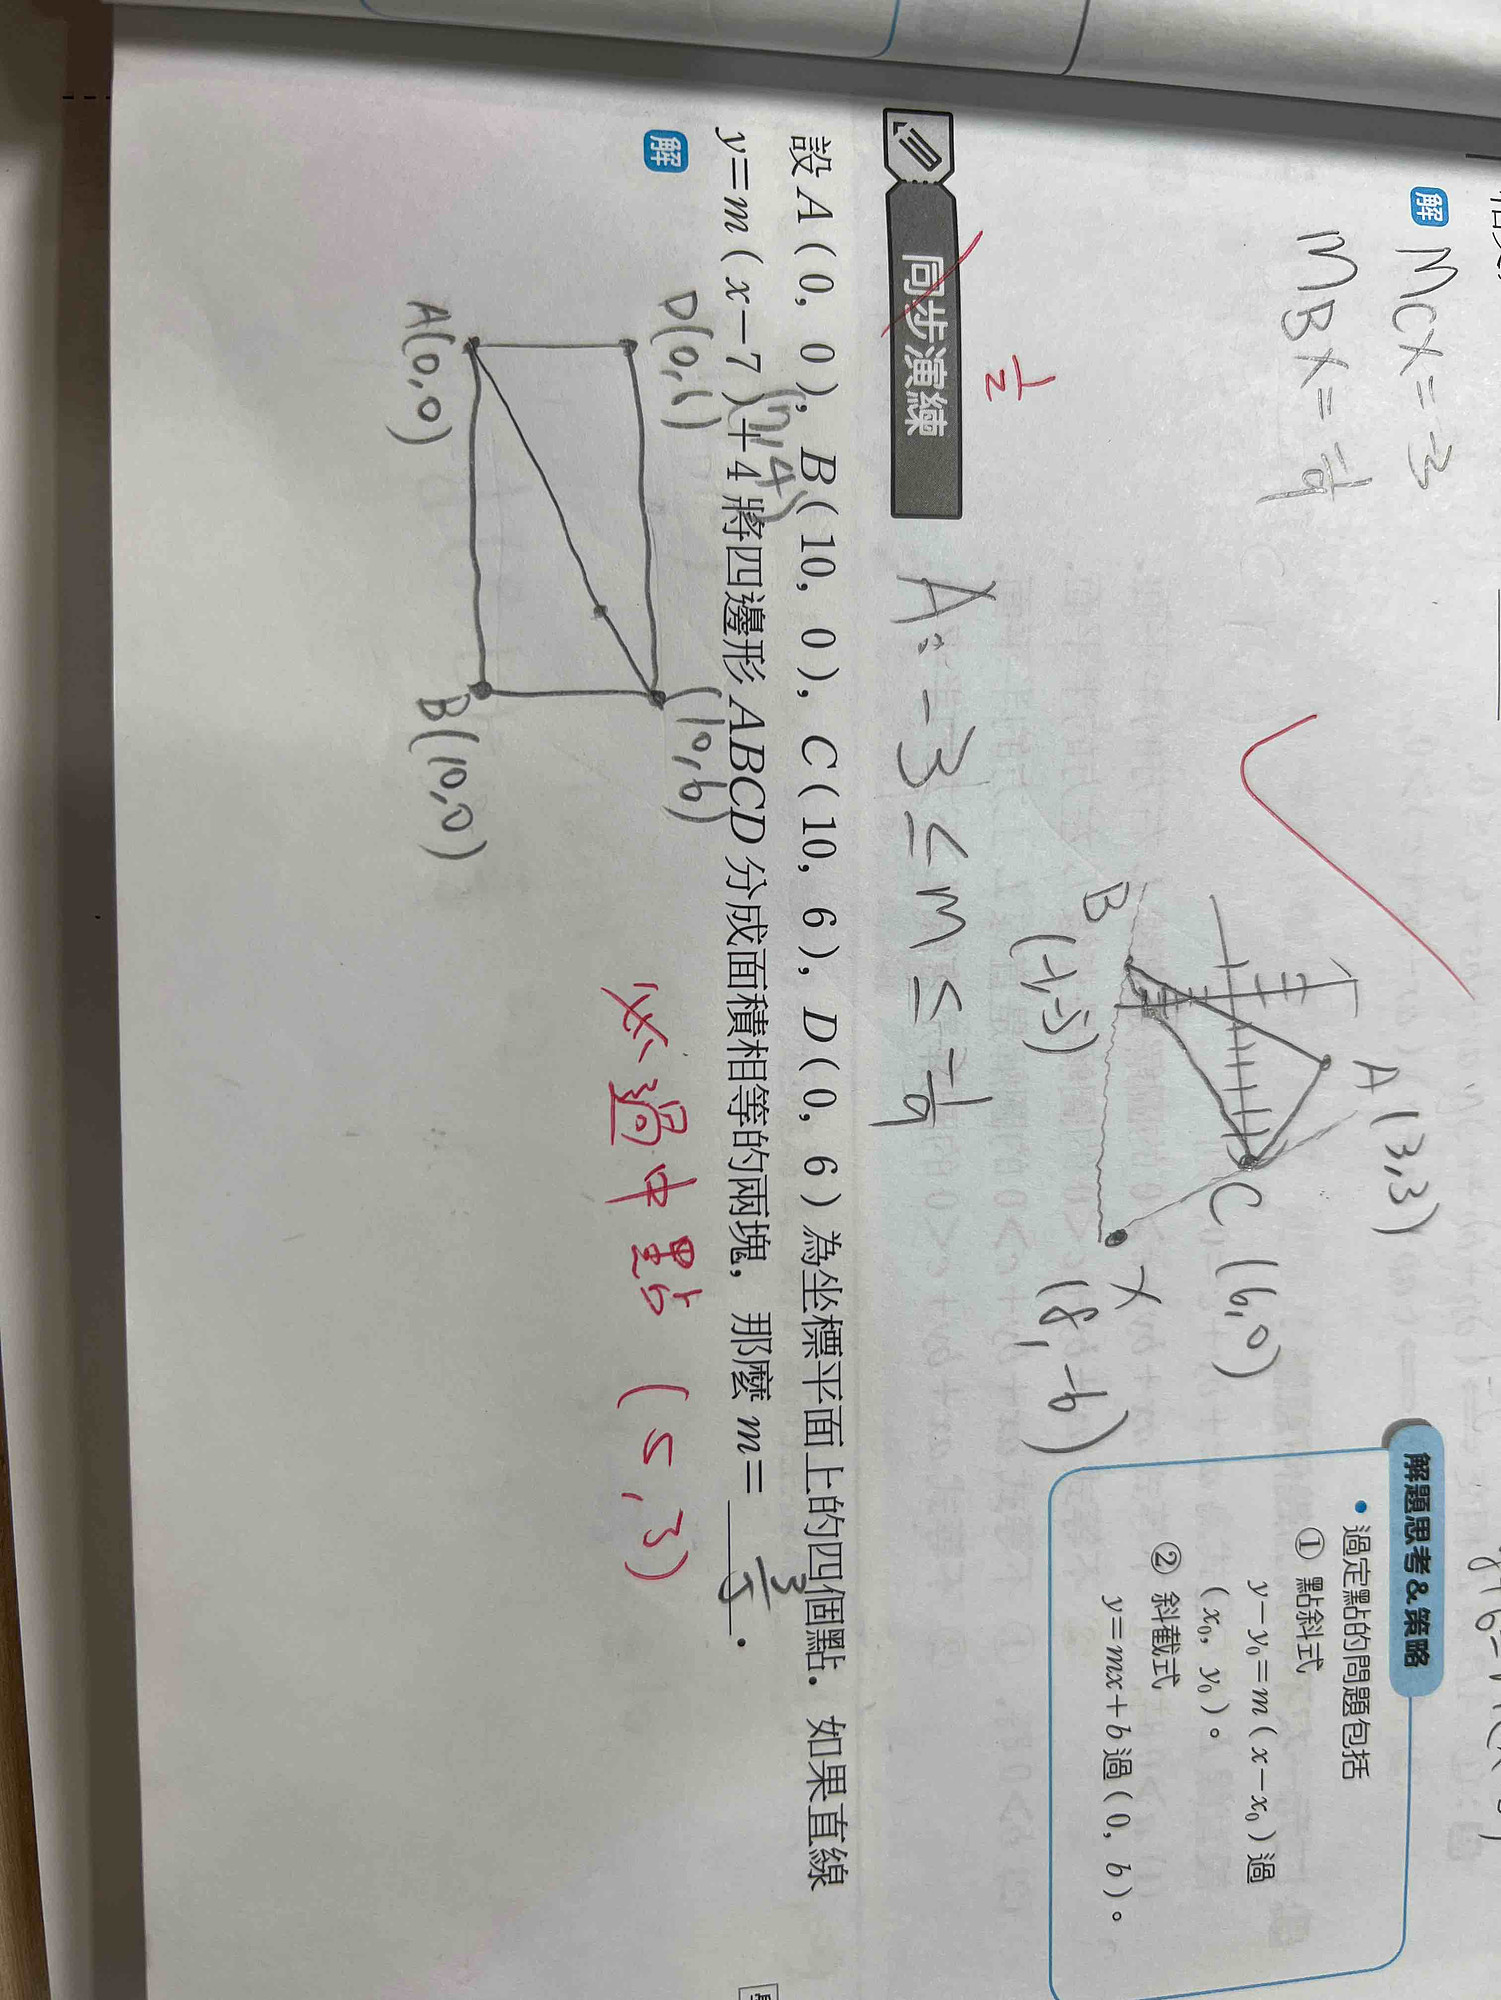 解 mCX = -3
mBX = -1/6
A(3,3)
C(6,0)
B(-1,-3)
X(8,-6)
A: -3 ≤ m ≤ -1/6
解題思考&策略
• 過定點的問題包括
① 點斜式
y-y₀=m(x-x₀)過
(x₀, y₀)。
② 斜截式
y=mx+b過(0, b)。
1/2
同步演練
設A(0, 0), B(10, 0), C(10, 6), D(0, 6)為坐標平面上的四個點. 如果直線
(7,4)
y=m(x-7)+4將四邊形ABCD分成面積相等的兩塊, 那麼m= 3/5 .
解
D(0,6)
(10,6)
A(0,0)
B(10,0)
必過中點 (5,3)